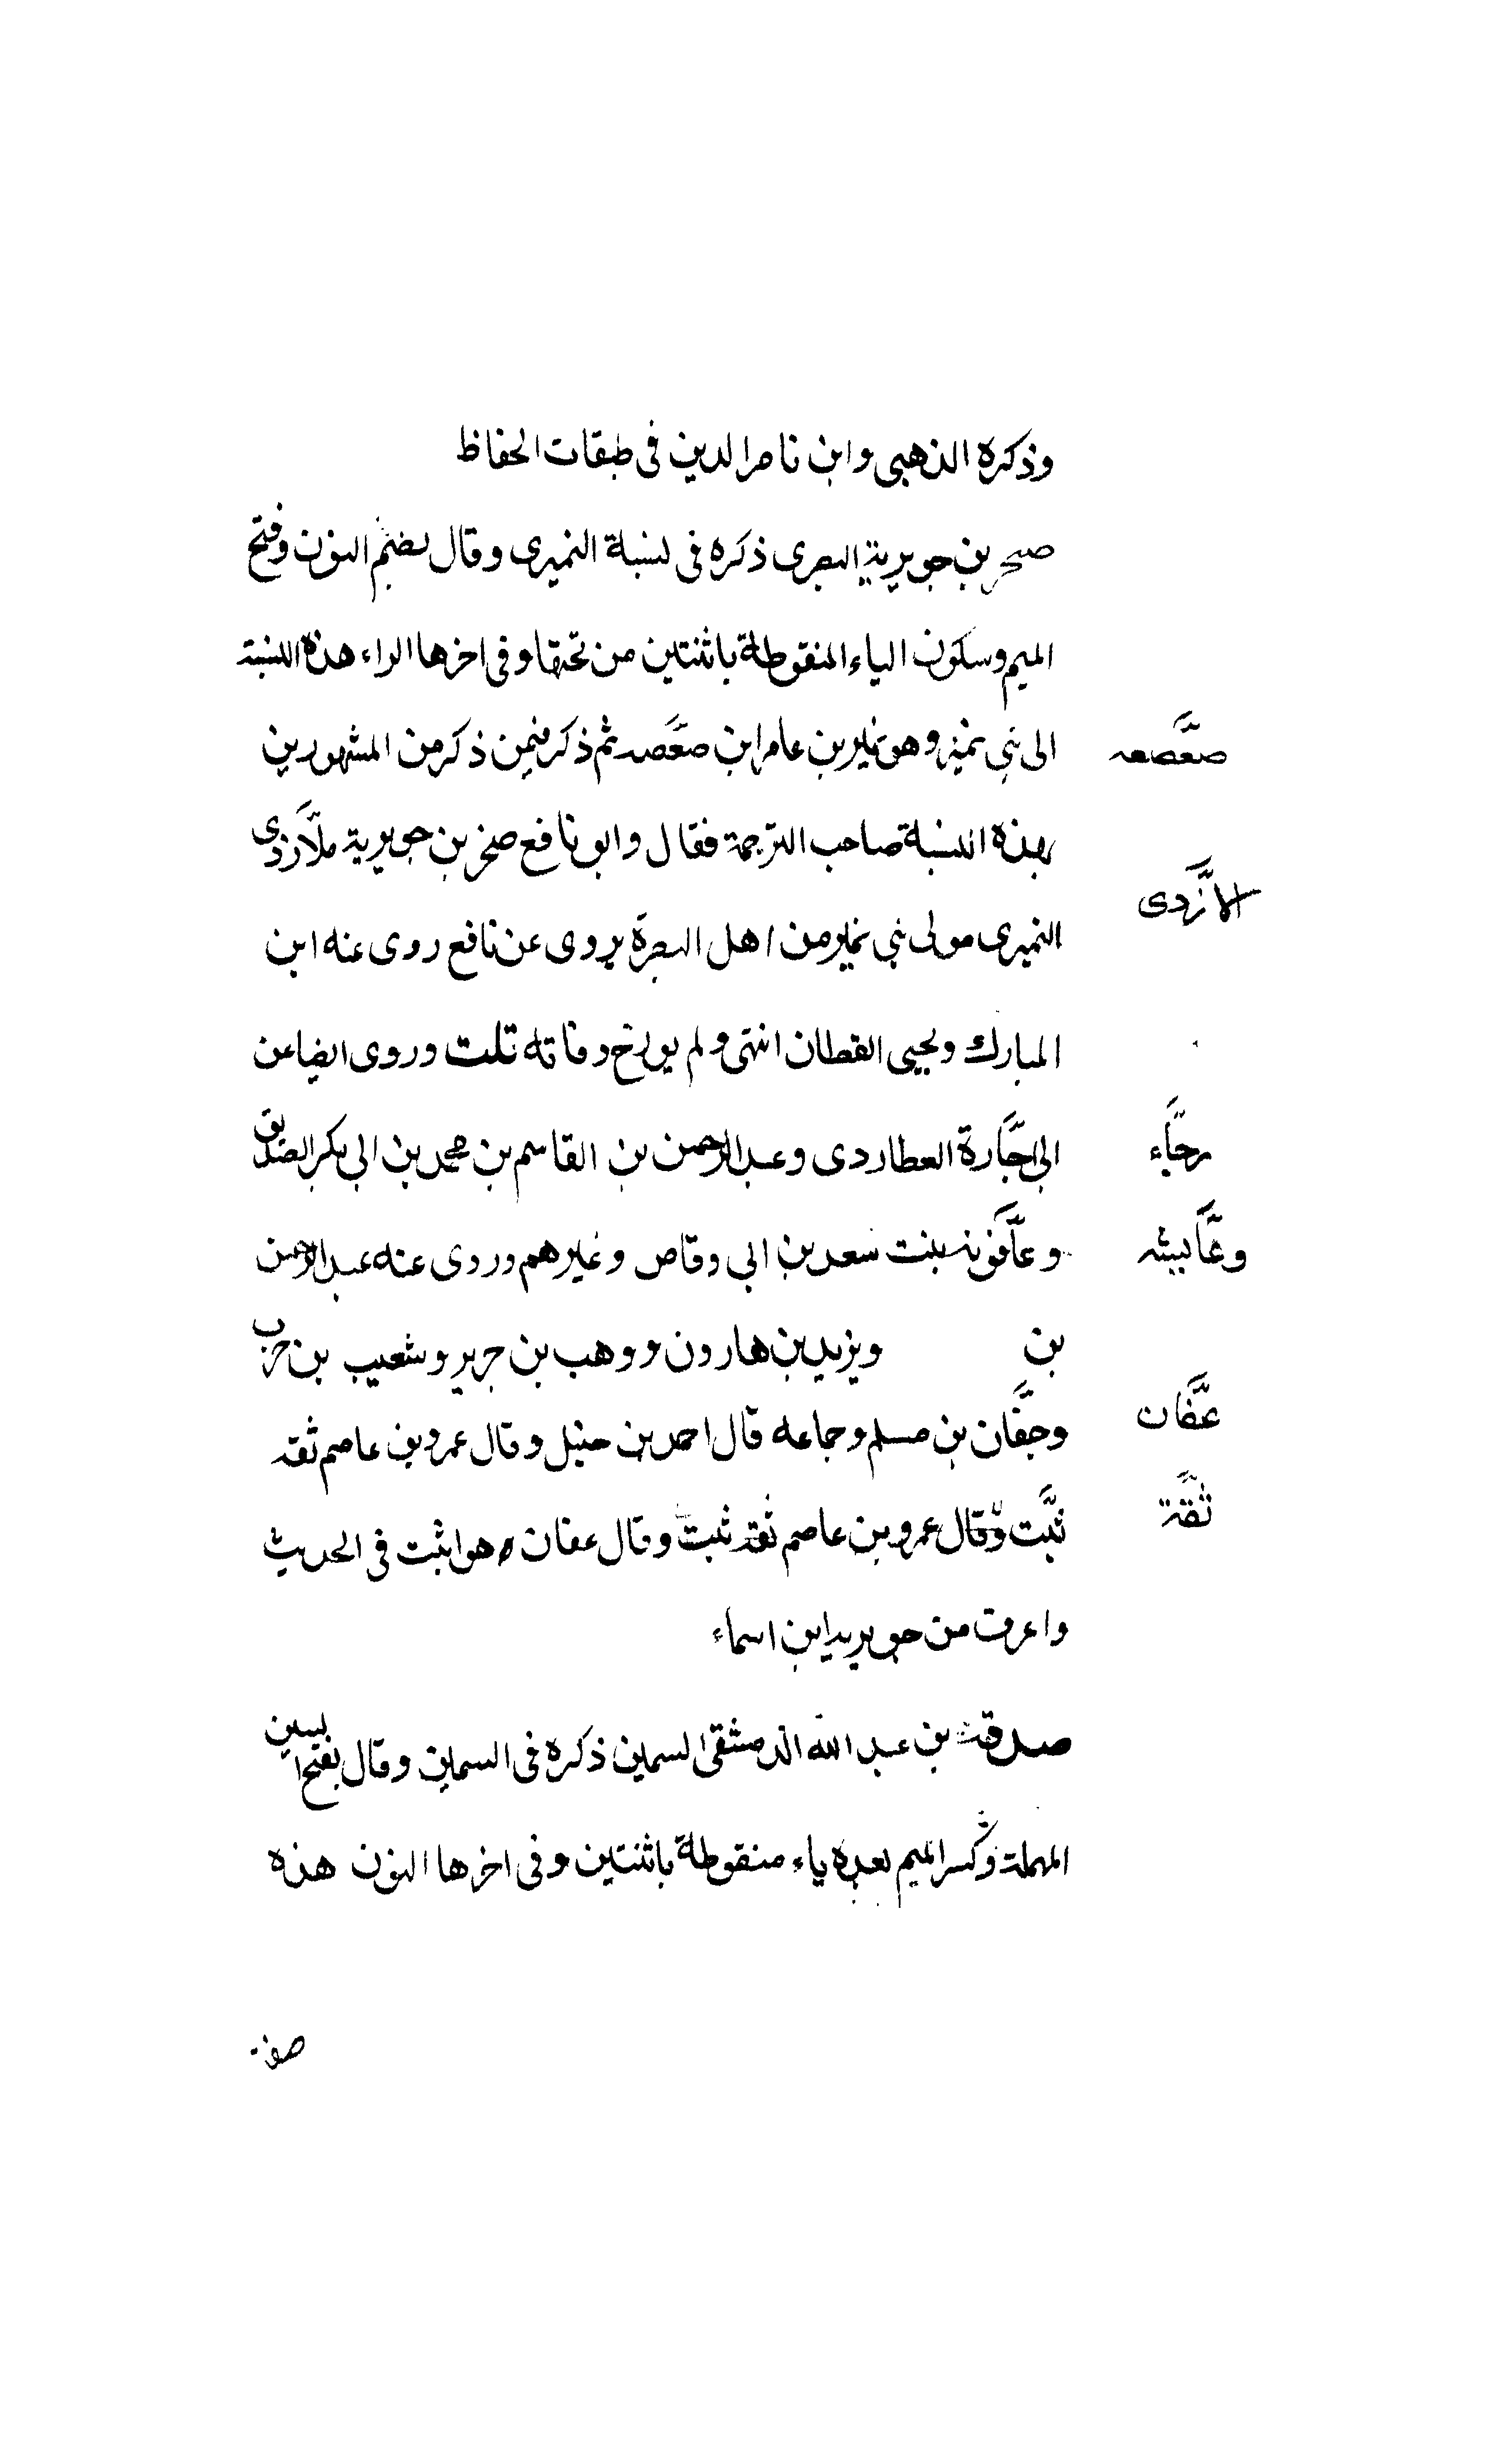 وذكره الذهبي وابن ناصر الدين في طبقات الحفاظ
صخر بن جويرية البصرى ذكره فى نسبة النميرى وقال بضم النون وفتح
الميم وسكون الياء المنقوطة باثنتين من تحتها وفى اخرها الراء هذه النسبة
الى بني نمير وهو نمير بن عامر ابن صعصه ثم ذكر فيمن ذكر من المشهورين
صعصعه
بهذه النسبة صاحب الترجمة فقال وابو نافع صخر بن جويرية ملازدى
الازدى
النميرى مولى بني نمير من اهل البصرة يروى عن نافع روى عنه ابن
المبارك ويحيى القطان انتهى ولم يورخ وفاته قلت وروى ايضا عن
ابى اجارة العطاردى وعبد الرحمن بن القاسم بن محمد بن ابى بكر الصديق
رجاء
بنت سعد بن ابى وقاص وغيرهم وروى عنه عبد الرحمن
وعايشه
بن ويزيد بن هارون ووهب بن جرير وشعيب بن حرب
وجفان بن مسلم وجماعه قال احمد بن حنبل وقال عمرو بن عاصم ثقه
عفان
ثبت وقال عمرو بن عاصم ثقه ثبت وقال عفان هو اثبت فى الحديث
ثقة
واعرف من جويريه ابن اسماء
صدقة بن عبد الله الدمشقى السمين ذكره فى السمين وقال بفتح السين
المهملة وكسر الميم بعده ياء منقوطة باثنتين وفى اخرها النون هذه